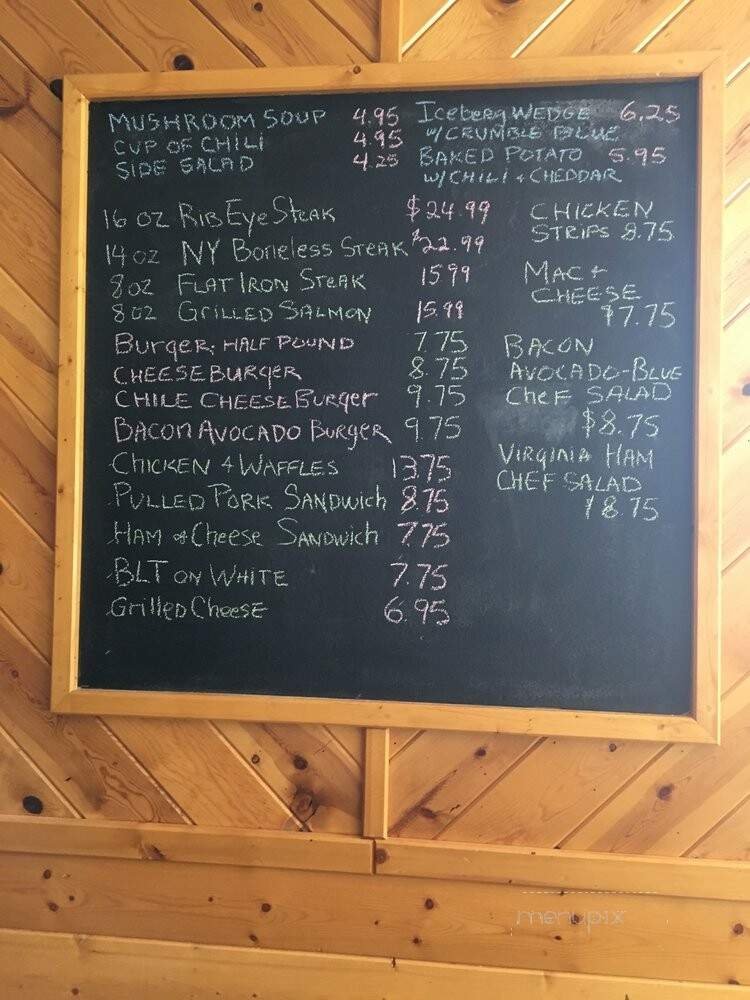 MUSHROOM SOUP 4.95
CUP OF CHILI 4.95
SIDE SALAD 4.25
Iceberg WEDGE 6.25
W/CRUMBLE BLUE
BAKED POTATO 5.95
W/CHILI + CHEDDAR
16 OZ RIB EYE STEAK $24.99
14 OZ NY Boneless STEAK $22.99
8 OZ FLAT IRON STEAK 1599
8 OZ GRILLED SALMON 15.99
Burger, HALF POUND 7.75
CHEESEBURGER 8.75
CHILE CHEESE BURGER 9.75
BACON AVOCADO BURGER 9.75
CHICKEN & WAFFLES 13.75
PULLED PORK SANDWICH 8.75
HAM & Cheese SANDWICH 7.75
BLT ON WHITE 7.75
GrilleD CHeeSE 6.95
CHICKEN
STRIPS 8.75
MAC +
CHEESE
$7.75
BACON
AVOCADO-BLUE
CHEF SALAD
$8.75
VIRGINIA HAM
CHEF SALAD
$8.75
menupix